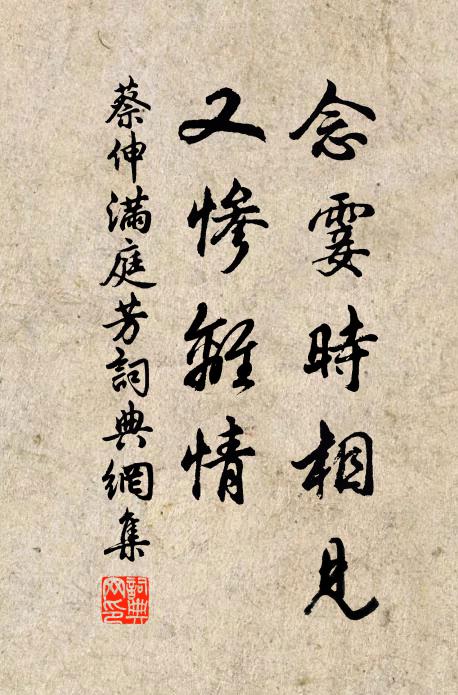 念霎時相見
又慘離情
蔡伸滿庭芳詞典網集
詞典網印